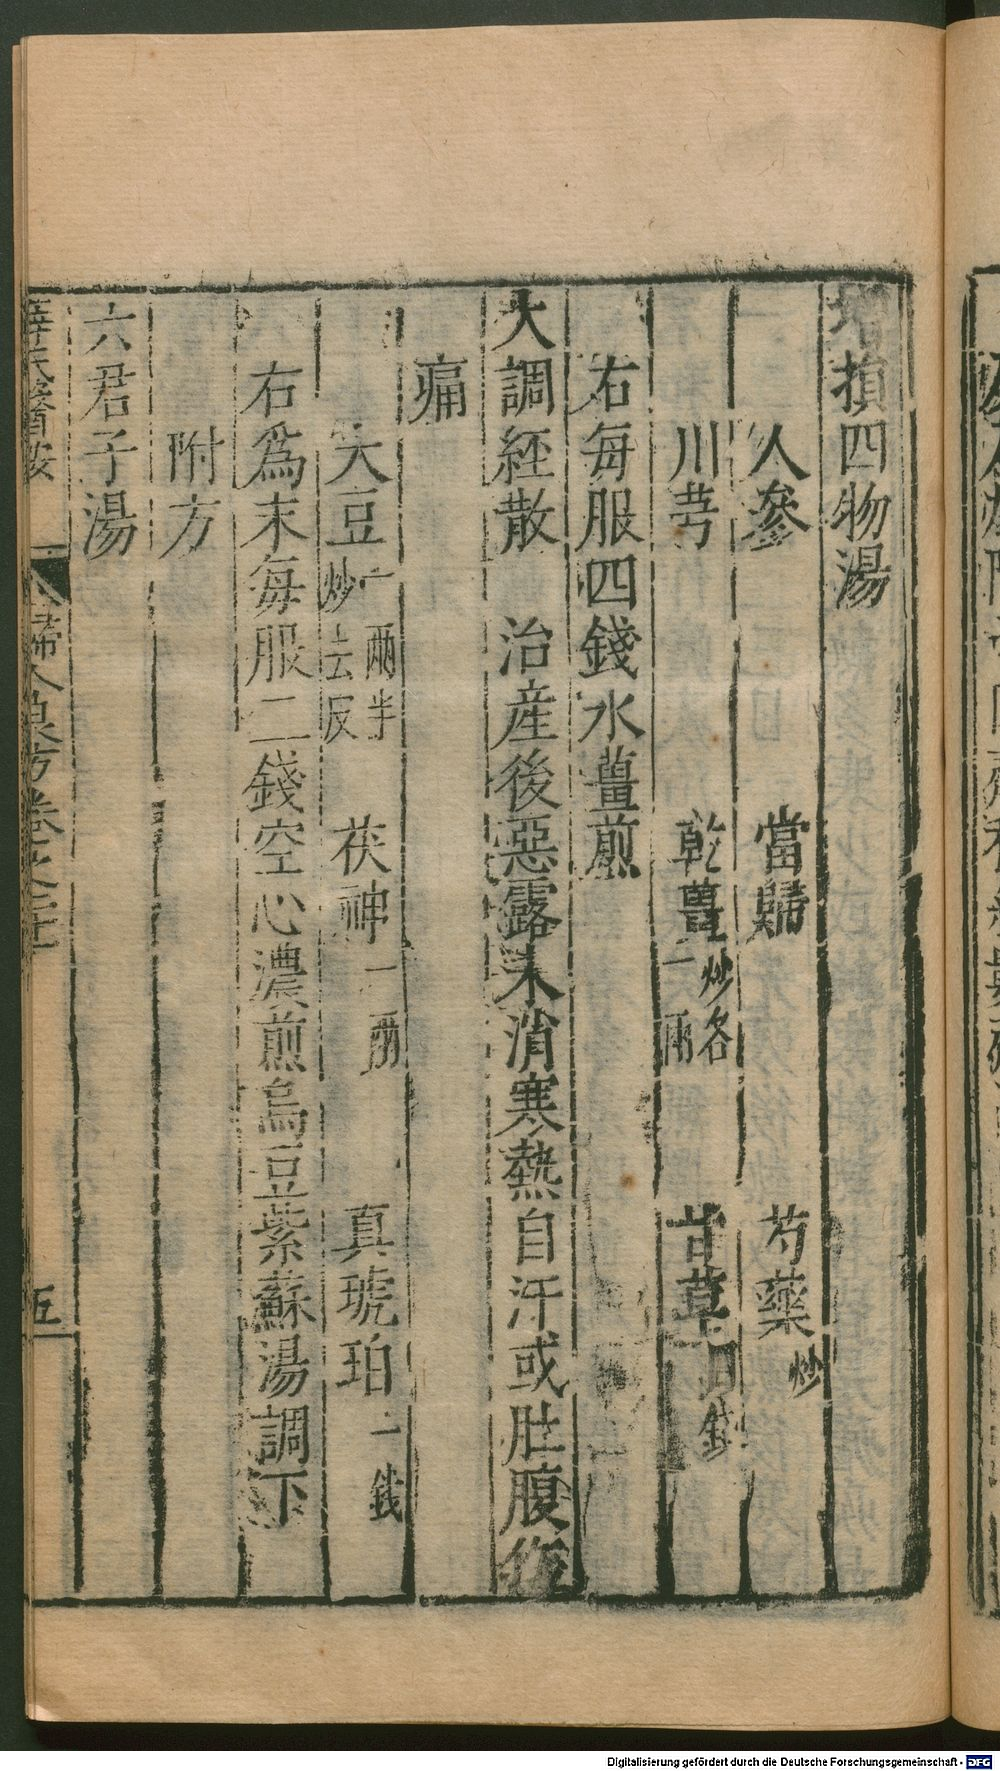 增損四物湯
人參 當歸 芍藥炒
川芎 乾薑炒各二兩 甘草四錢
右每服四錢水薑煎
大調經散 治産後惡露未消寒熱自汗或肚腹作
痛
大豆一兩半炒去皮 茯神一兩 真琥珀一錢
右爲末每服二錢空心濃煎烏豆紫蘇湯調下
附方
六君子湯
薛氏醫按 婦人良方卷之 五
Digitalisierung gefördert durch die Deutsche Forschungsgemeinschaft - DFG